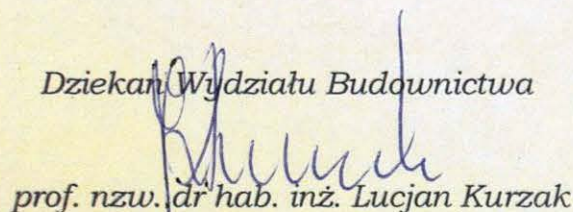 Dziekan Wydziału Budownictwa
prof. nzw. dr hab. inż. Lucjan Kurzak